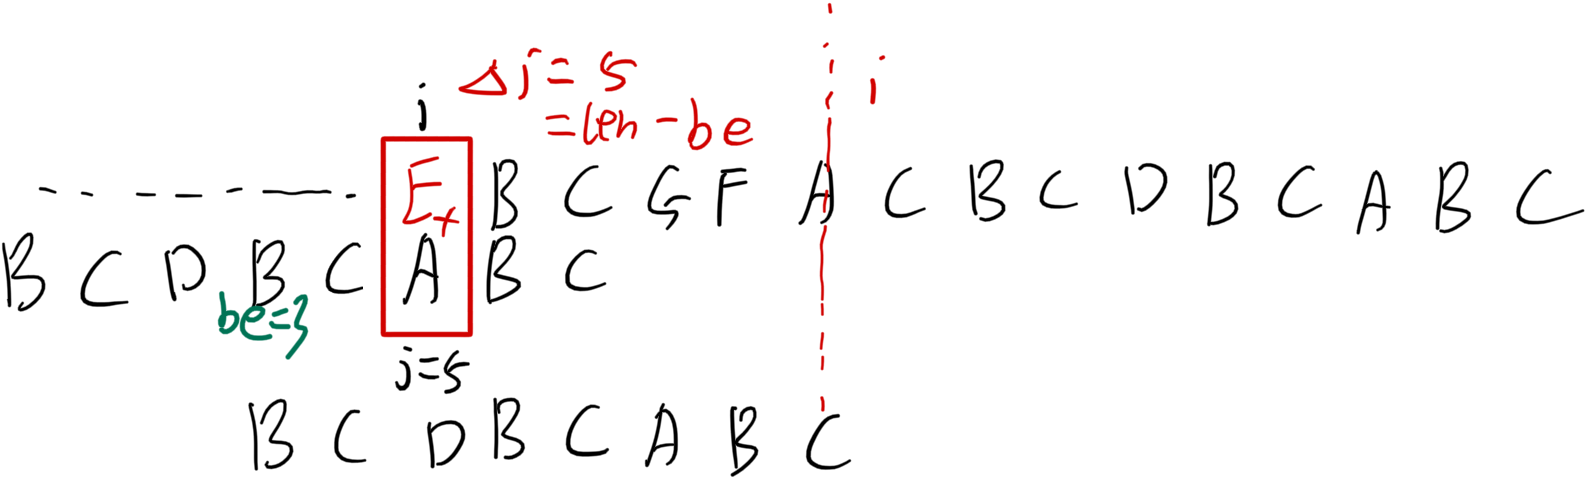 i
Δj = 5
i
= len - be
E B C G F A C B C D B C A B C
B C D B C A B C
be=3
j=5
B C D B C A B C